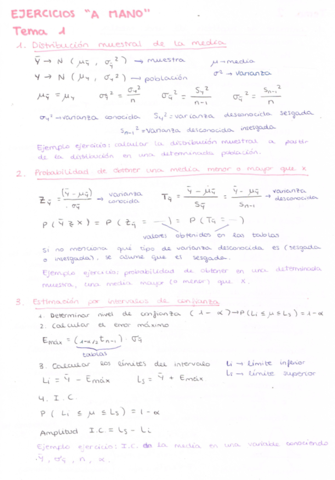 EJERCICIOS "A MANO"
Tema 1
1. Distribución muestral de la media
Ȳ → N ( μȳ , σȳ² ) → muestra   μ → media
Y → N ( μy , σy² ) → población   σ² → varianza
μȳ = μy   σȳ² = σy²/n   σȳ² = Sy²/n-1   σȳ² = Sn-1²/n
σy² → varianza conocida   Sy² : varianza desconocida sesgada
Sn-1² = varianza desconocida insesgada
Ejemplo ejercicio: calcular la distribución muestral a partir
de la distribución en una determinada población.
2. Probabilidad de obtener una media menor o mayor que x
Zȳ = (Ȳ - μȳ)/σȳ → varianza conocida   Tȳ = Ȳ - μȳ/Sȳ = Ȳ - μȳ/Sn-1 → varianza desconocida
P ( Ȳ ≥ x ) = P ( Zȳ = ... ) = P ( Tȳ = ... )
valores obtenidos en las tablas
Si no menciona qué tipo de varianza desconocida es (sesgada
o insesgada), se asume que es sesgada.
Ejemplo ejercicio: probabilidad de obtener en una determinada
muestra, una media mayor (o menor) que x.
3. Estimación por intervalos de confianza
1. Determinar nivel de confianza (1-α) → P(Li ≤ μ ≤ Ls) = 1-α
2. Calcular el error máximo
Emáx = (1-α/2 tn-1) σȳ
tablas
3. Calcular los límites del intervalo   Li → Límite inferior
Li = Ȳ - Emáx   Ls = Ȳ + Emáx   Ls → Límite superior
4. I.C.
P ( Li ≤ μ ≤ Ls ) = 1-α
Amplitud I.C = Ls - Li
Ejemplo ejercicio: I.C. de la media en una variable conociendo
Ȳ, σȳ, n, α.